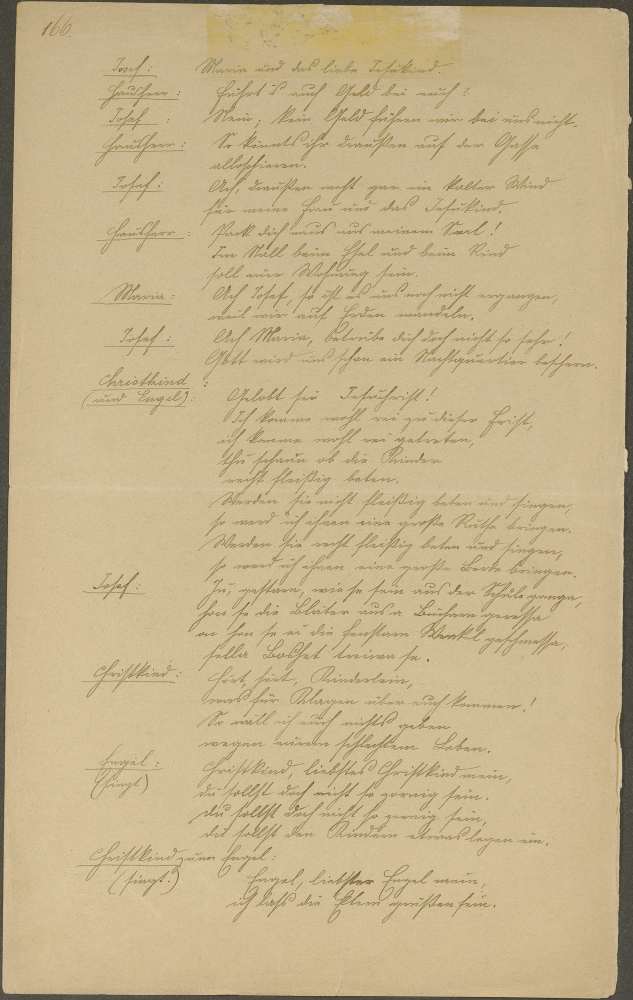 166.
Josef: Maria und das liebe Jesukind.
Hausherr: Führt's auch Geld bei euch?
Josef: Nein, kein Geld führen wir bei uns nicht.
Hausherr: So könnts ihr draußen auf der Gasse
Josef: Ach, draußen weht gar ein kalter Wind
für meine Frau und das Jesukind.
Hausherr: Pack dich naus aus meinem Saal!
Im Stall beim Esel und beim Rind
soll eure Wohnung sein.
Maria: Ach Josef, so ist es uns noch nicht ergangen,
weil wir auf Erden wandeln.
Josef: Ach Maria, betrübe dich doch nicht so sehr!
Gott wird uns schon ein Nachtquartier bescheren.
Christkind
(und Engel): Gelobt sei Jesuchrist!
Ich komme wohl rei zu dieser Frist,
ich komme wohl rei getreten,
thu schaun ob die Kinder
recht fleißig beten.
Werden sie nicht fleißig beten und singen,
so werd ich ihnen eine große Ruthe bringen.
Werden sie recht fleißig beten und singen,
so werd ich ihnen eine große Berde bringen.
Josef: Ju, gestarn, wie se sein aus der Schule ganga,
hon se die Bläter aus a Büchern gerissa
on hon se ei die Fenstarn geschmessa,
sella Boshet treiwa se.
Christkind: Hört, hört, Kinderlein,
was für Klagen über euch kommen!
So will ich euch nichts geben
wegen eurem schlechten Leben.
Engel:
(singt) Christkind, liebstes Christkind mein,
du sollst doch nicht so zornig sein.
Du sollst doch nicht so zornig sein,
du sollst den Kindern etwas legen ein.
Christkind zum Engel:
(singt:) Engel, liebster Engel mein,
ich laß die Eltern grüßen fein.